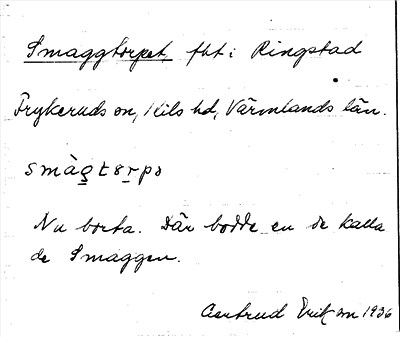 Smaggtorpet, fht i Ringstad
Frykeruds sn, Kils hd, Värmlands län.
smàg̲tɷr̲pə
Nu borta. Där bodde en de kalla
de Smaggen.
Gertrud Eriksson 1936